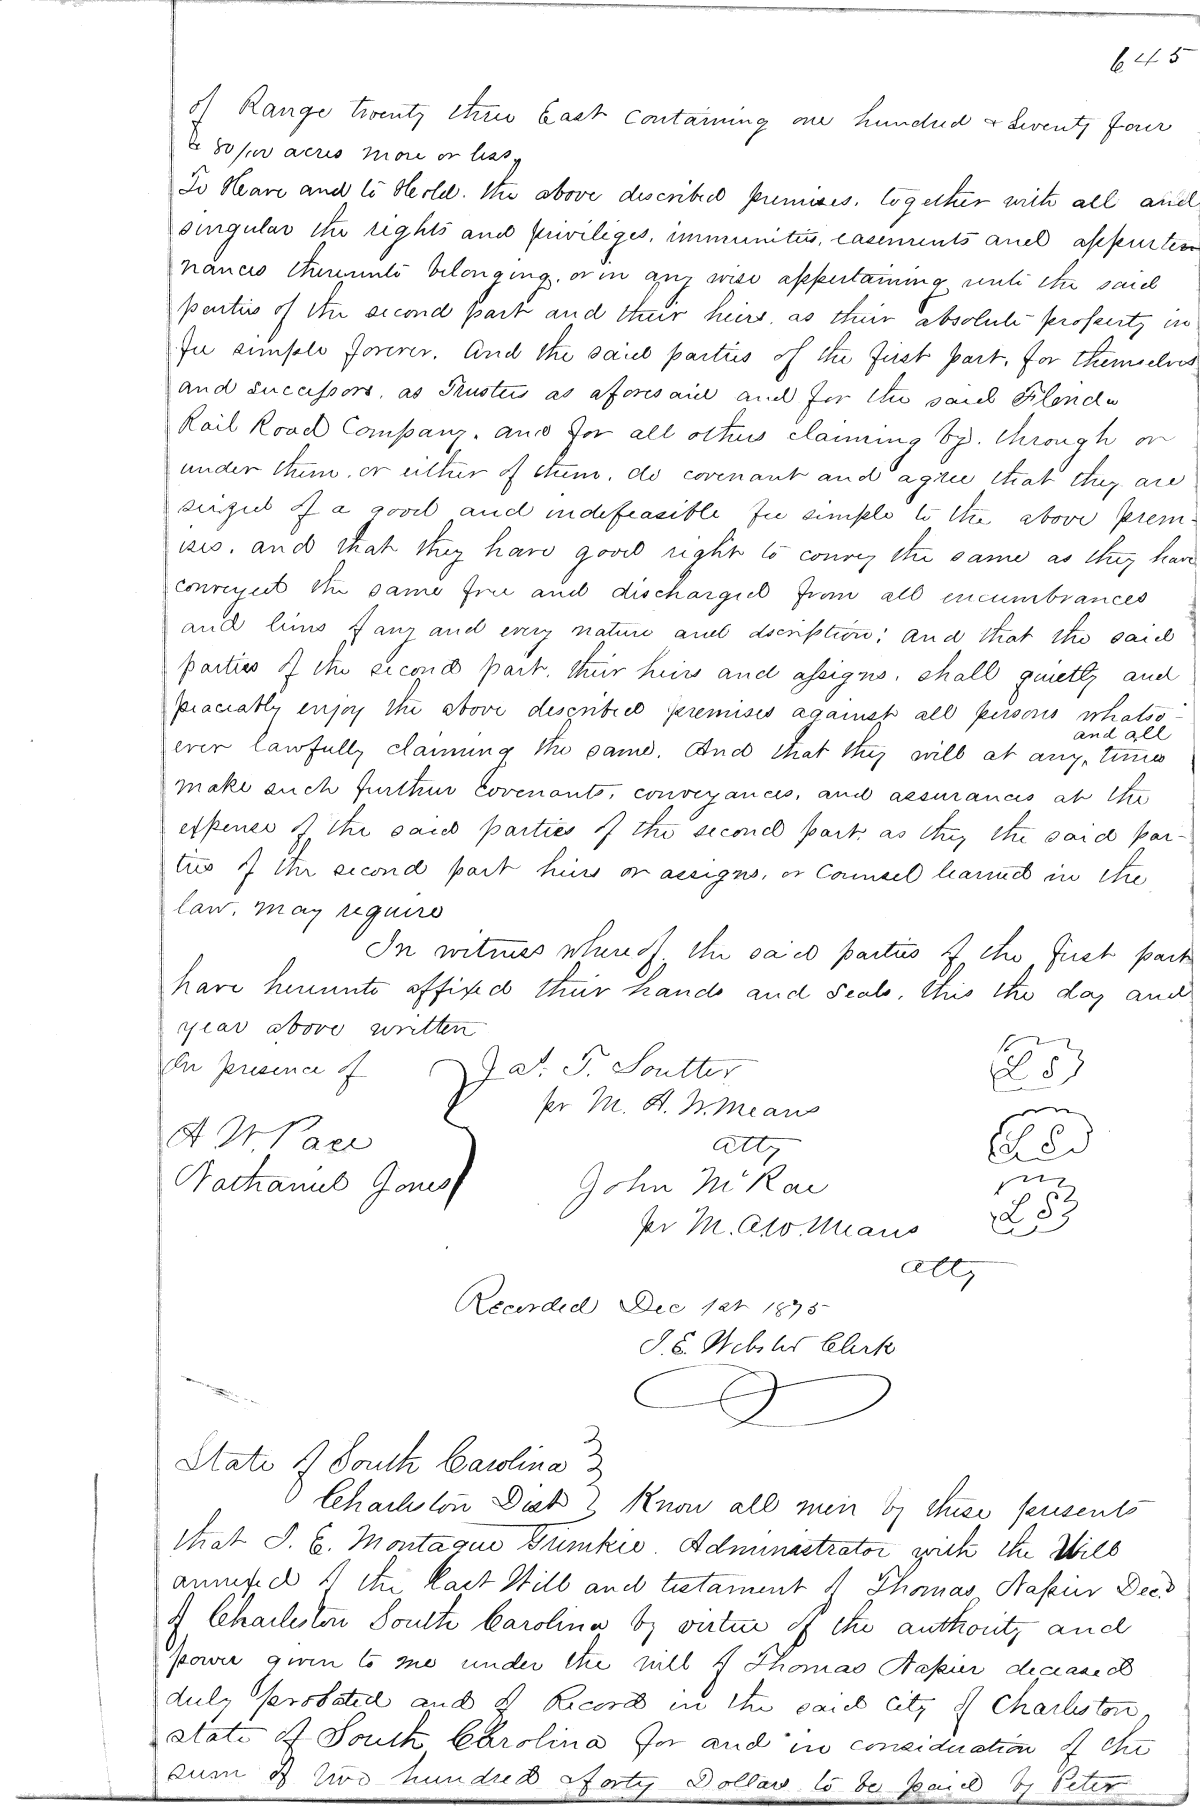 645
of Range twenty three East containing one hundred & Seventy four
& 80/100 acres more or less,
To Have and to Hold. the above described premises, together with all and
singular the rights and priviliges, immunities, easements and appurten
nances thereunto belonging, or in any wise appertaining unto the said
parties of the second part and their heirs, as their absolute property in
fee simple forever. And the said parties of the first part, for themselves
and successors, as Trustees as aforesaid and for the said Florida
Rail Road Company, and for all others claiming by, through or
under them, or either of them, do covenant and agree that they are
seized of a good and indefeasible fee simple to the above prem-
ises, and that they have good right to convey the same as they have
conveyed the same free and discharged from all encumbrances
and liens of any and every nature and dscription; and that the said
parties of the second part, their heirs and assigns, shall quietly and
peaceably enjoy the above described premises against all persons whatso-
and all
ever lawfully claiming the same. And that they will at any, times
make such further covenants, conveyances, and assurances at the
expense of the said parties of the second part, as they the said par-
ties of the second part heirs or assigns, or Counsel learned in the
law, may require
In witness whereof, the said parties of the first part
have hereunto affixed their hands and Seals, this the day and
year above written
In presence of Jas. T. Soutter LS
per M. A. W. Means
A W. Pace atty LS
Nathaniel Jones John McRae
per M. A. W. Means LS
atty
Recorded Dec 1st 1875
J. E. Webster Clerk
State of South Carolina
Charleston Dist Know all men by these presents
that I. E. Montague Grimkie. Administrator with the Will
annexed of the Last Will and testament of Thomas Napier Decd
of Charleston South Carolina by virtue of the authority and
power given to me under the will of Thomas Napier deceased
duly probated and of Record in the said City of Charleston,
state of South Carolina for and in consideration of the
sum of two hundred & forty Dollars to be paid by Peter